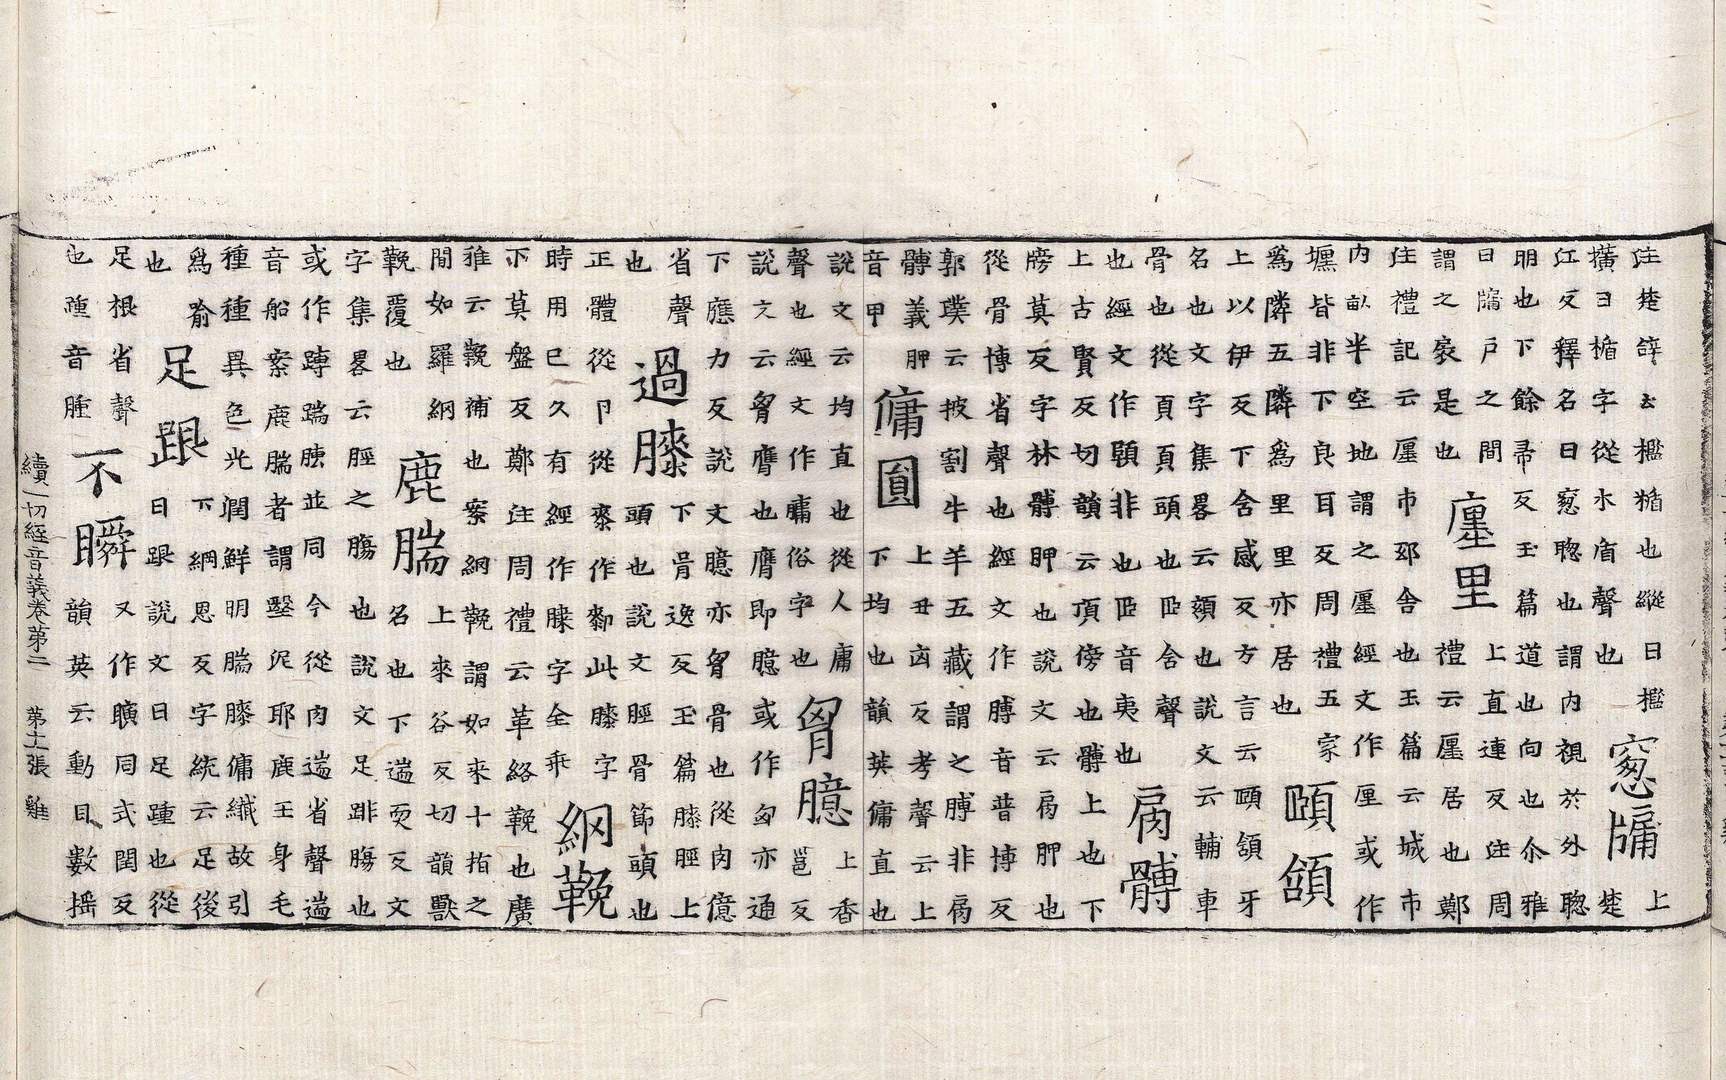 注楚辭云檻楯也縱曰檻
橫曰楯字從木盾聲也
窻牖
上
楚
江反釋名曰窻聰也謂內視於外聰
明也下餘帚反玉篇道也向也尒雅
曰牖戶之間
謂之扆是也
廛里
上直連反注周
禮云廛居也鄭
注禮記云廛市邸舍也玉篇云城市
內畝半空地謂之廛經文作厘或作
壥皆非下良耳反周禮五家
爲隣五隣爲里里亦居也
頤頷
上以伊反下含感反方言云頤頷牙
名也文字集畧云頦也說文云輔車
骨也從頁頁頭也𦣝含聲
也經文作顊非也𦣝音夷也
肩髆
上古賢反切韻云項傍也髆上也下
牓莫反字林髆胛也說文云肩胛也
從骨博省聲也經文作膊音普博反
郭璞云披割牛羊五藏謂之膊非肩
髆義胛
音甲
傭圓
上丑凶反考聲云上
下均也韻英傭直也
說文云均直也從人庸
聲也經文作俗字也
胷臆
上香
邕反
說文云胷膺也膺即臆或作匈亦通
下應力反說文臆亦胷骨也從肉億
省聲
也
過膝
下胥逸反玉篇膝脛上
頭也說文脛骨節頭也
正體從卪從桼作厀此膝字
時用已久有經作字全乖
網鞔
下莫盤反鄭注周禮云革絡鞔也廣
雅云鞔補也案網鞔謂如來十指之
間如羅網
鞔覆也
鹿腨
上來谷反切韻獸
名也下遄耎反文
字集畧云脛之膓也說文足腓膓也
或作蹲踹並同今從肉遄省聲遄
音船案鹿腨者謂翳泥耶鹿王身毛
種種異色光潤鮮明腨膝傭纖故引
爲喻
也
足跟
下網恩反字統云足後
曰跟說文曰足踵也從
足根省聲
也踵音腫
不瞬
又作瞚同式閏反
韻英云動目數搖
續一切經音義卷第二 第十一張 雞